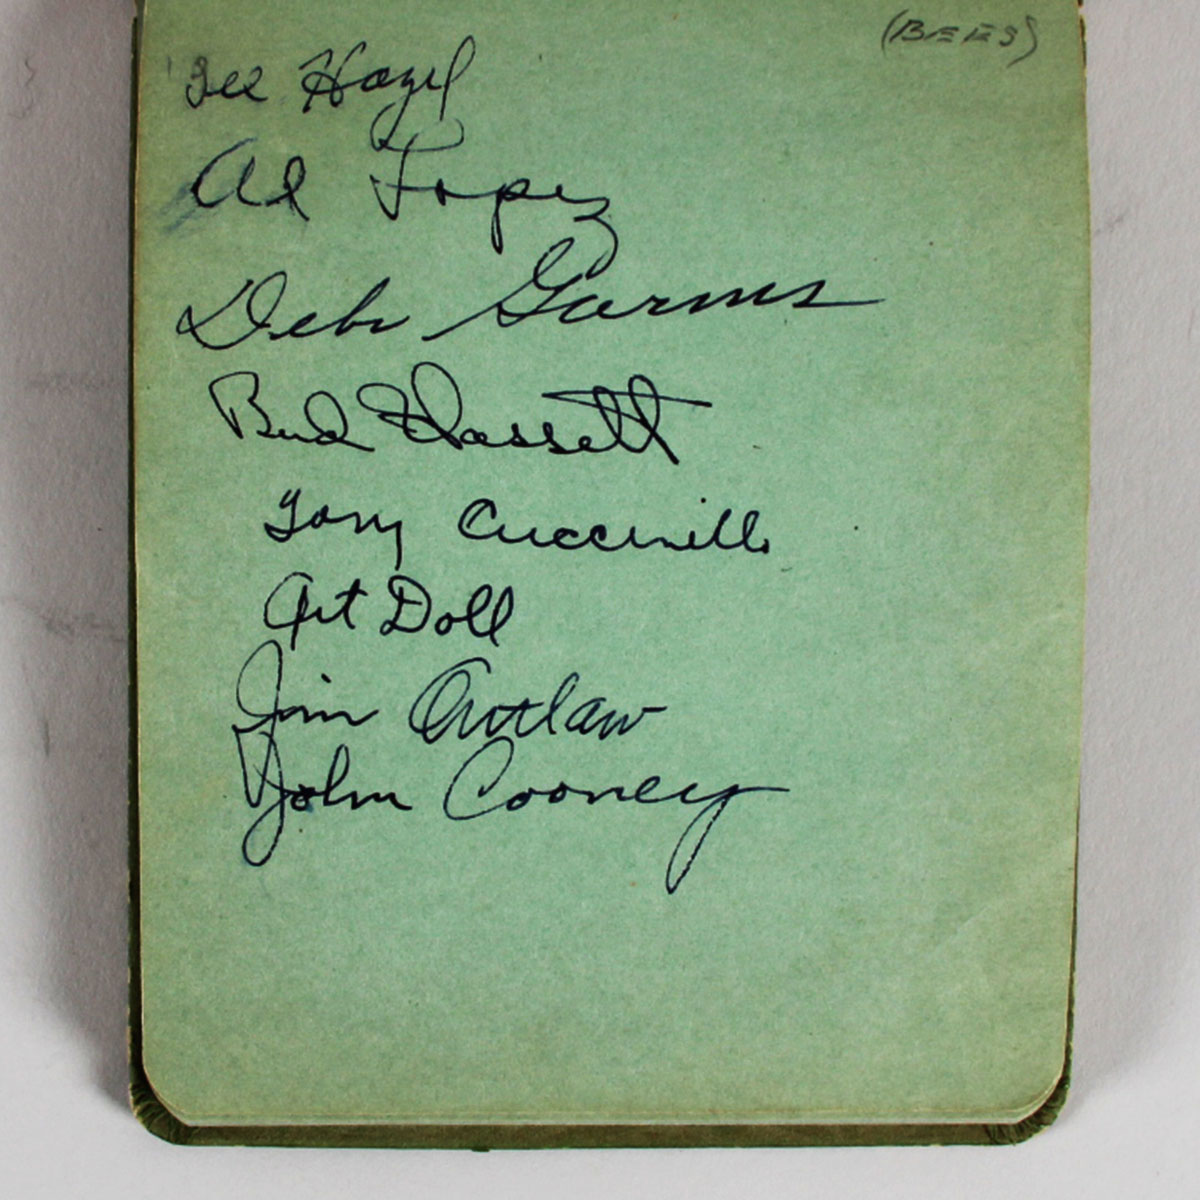 (BEES)
Al Lopez
Deb Garms
Bud Hassett
Tony Cuccinello
Art Doll
Jim Outlaw
John Cooney